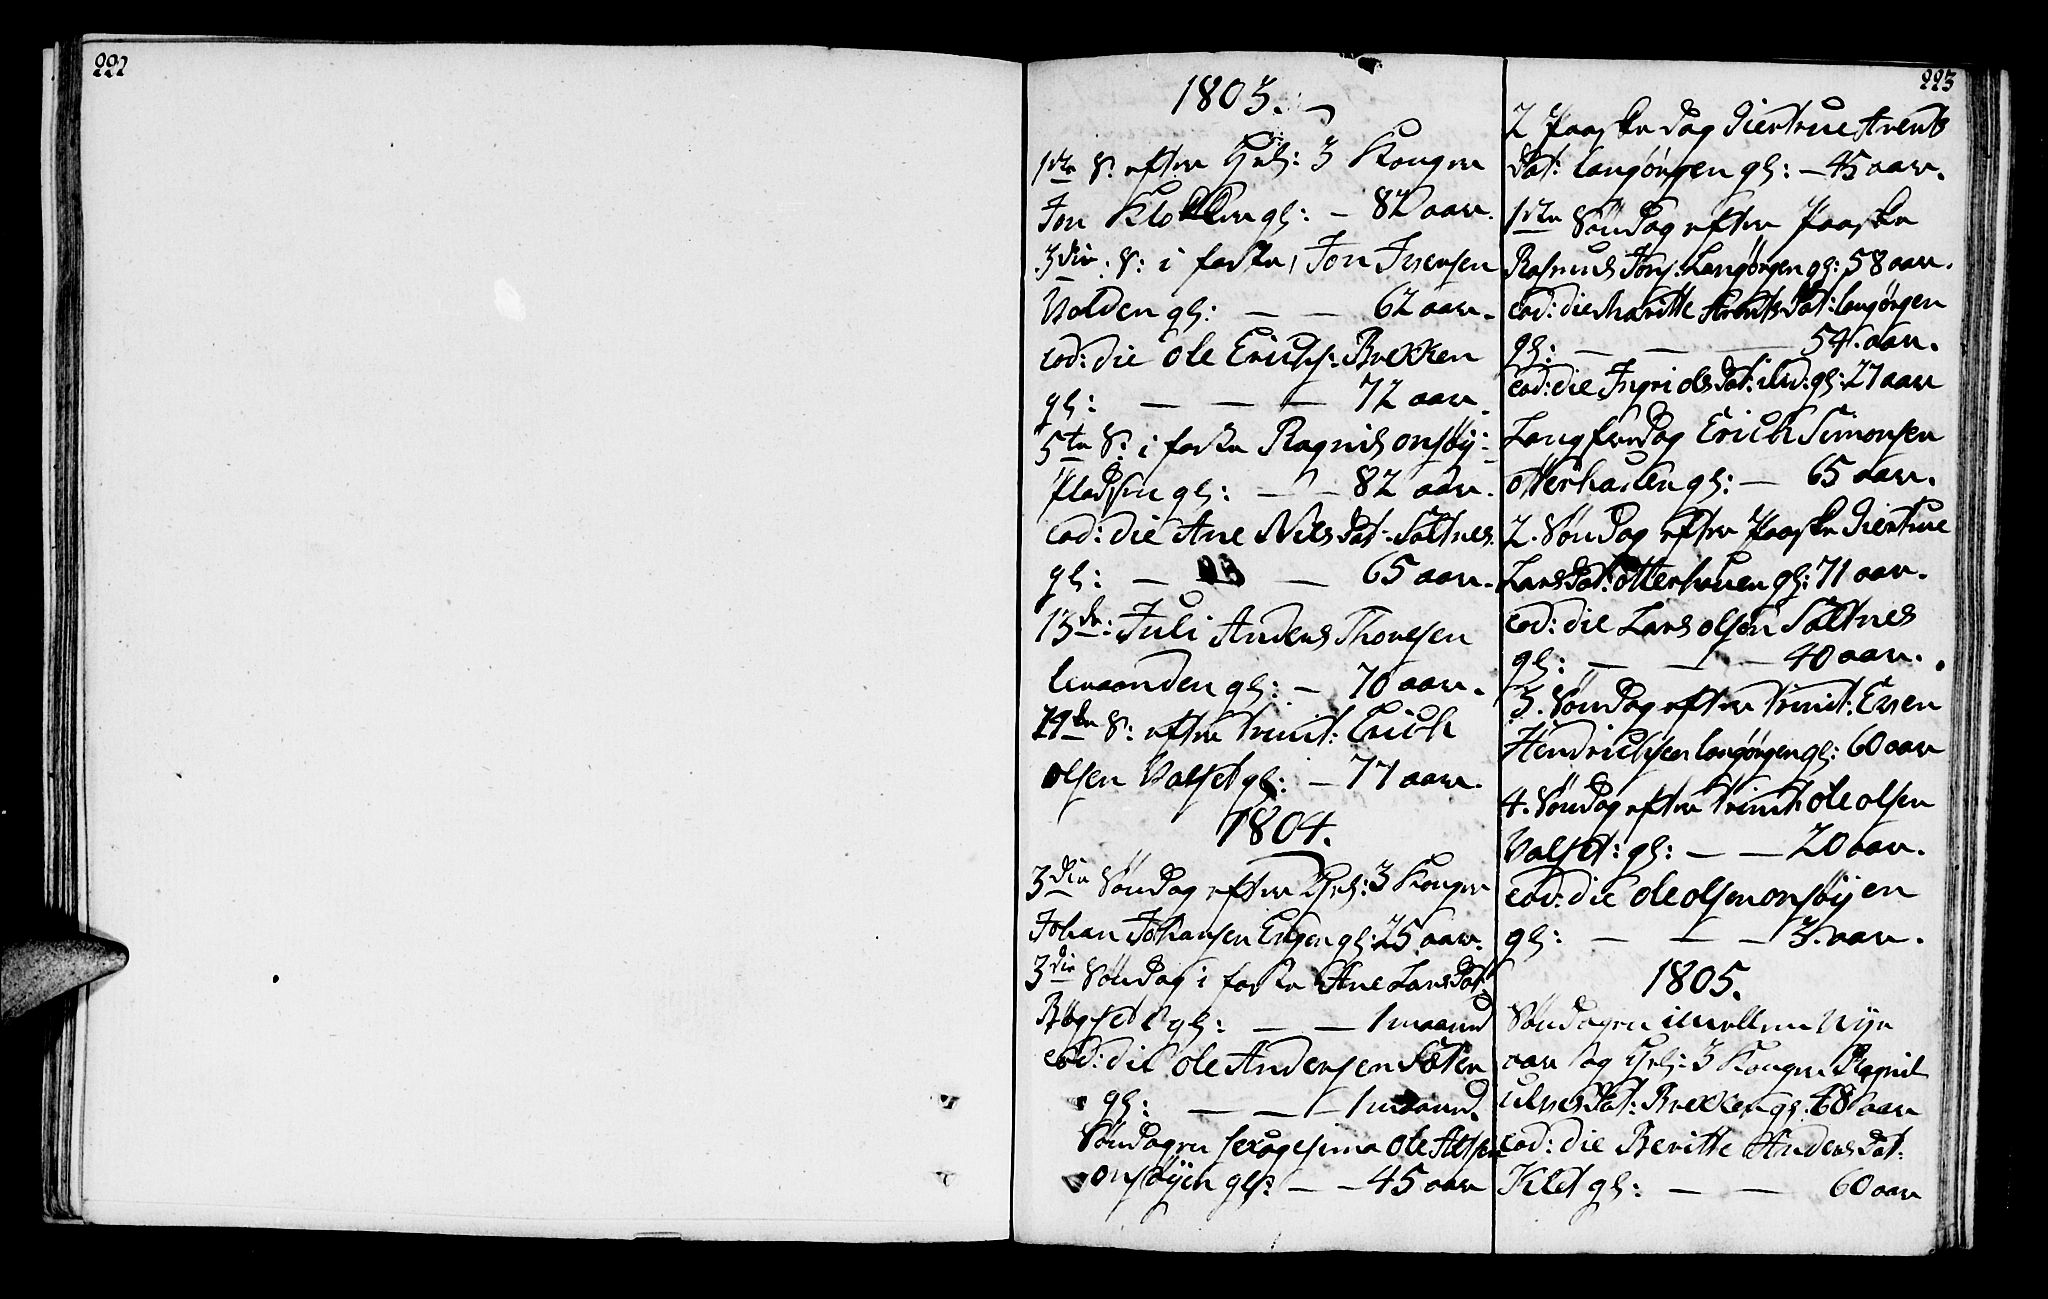 222
1803.
1ste S: efter Hel: 3 Konger
Jon Klokken gl: — 82 aar.
3die S: i faste, Jon Iversen
Volden gl: — — 62 aar.
eod: die Ole Erichs: Brekken
gl: — — — 72 aar.
5te S: i faste Ragnild onsøy-
pladsen gl: — — 82 aar.
eod: die Ane Nils Dat: Saltnes.
gl: — — 65 aar.
13de: Juli Anders Thoresen
gl: — 70 aar.
19de S: efter trinit: Erich
olsen Valset gl: — 77 aar.
1804.
3die Søndag efter Hel: 3 Konger
Johan Johansen Engen gl: 25 aar.
3die Søndag i faste Ane Lars Dat
Røgset gl: — — 1 maaned
eod: die Ole Andersen
gl: — — — 1 maaned.
Søndagen sexagesima Ole
onsøyen gl: — — 45 aar
223
2 Paaske dag Giertrue Arents
Dat: langørgen gl: — 45 aar.
1ste Søndag efter Paaske
Rasmus Jons: Langørgen gl: 58 aar.
eod: die Maritte Arents Dat: langørgen
gl: — — — 54. aar.
eod: die Ingri ols Dat: ibid: gl: 27 aar
Langfredag Erich Simonsen
otterhauen gl: — 65 aar.
2. Søndag efter Paaske Giertrue
Lars Dat: otterhauen gl: 71 aar.
eod: die Lars olsen Saltnes
gl: — — — 40 aar.
3. Søndag efter trinit: Even
Hendrichsen langørgen gl: 60 aar
4. Søndag efter trinit: ole olsen
Valset: gl: — — 20 aar.
eod: die ole olsen onsøyen
gl: — — — 3. aar.
1805.
Søndagen imellem Nye
aar og Hel: 3 Konger Ragnil
Dat: Brekken gl: 68 aar
eod: die Beritte Anders Dat:
Klet gl: — — 60 aar